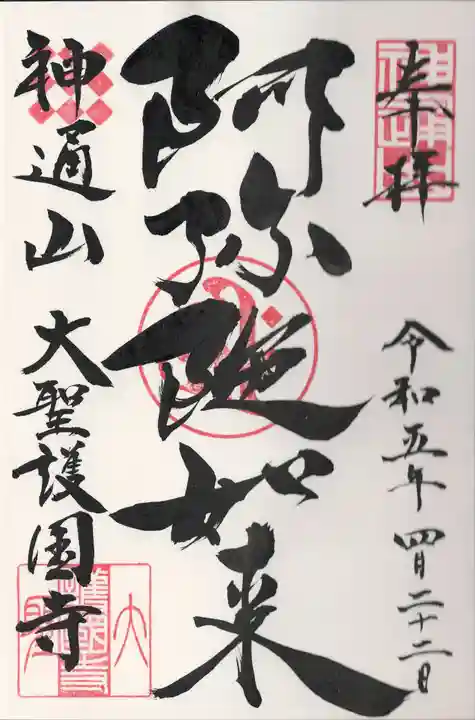 奉拝
令和五年 四月二十二日
阿弥陀如来
神通山 大聖護国寺
神通山